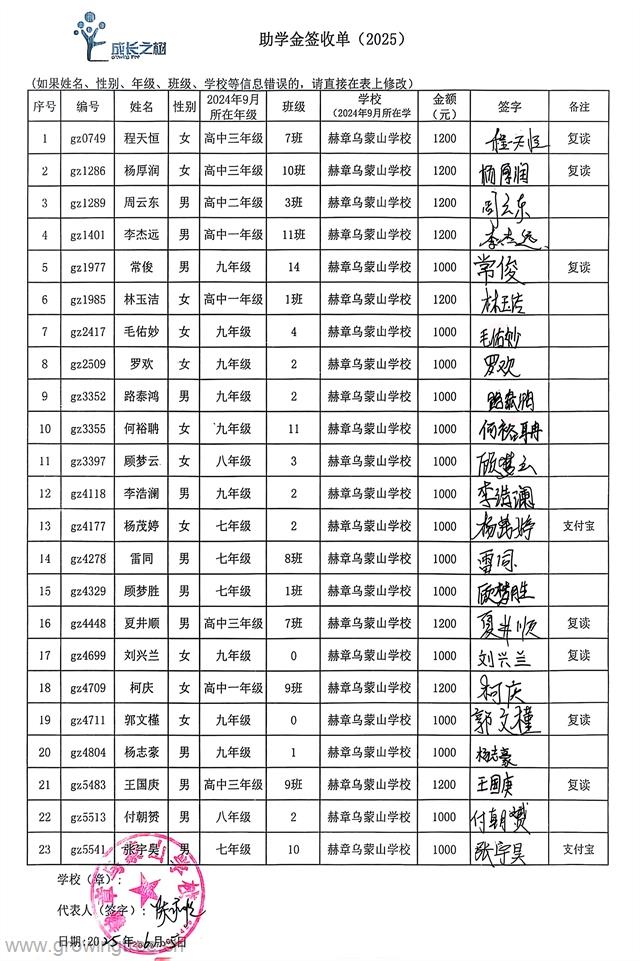 成长之树
Growing Tree
助学金签收单（2025）
(如果姓名、性别、年级、班级、学校等信息错误的，请直接在表上修改)
序号 编号 姓名 性别 2024年9月所在年级 班级 学校（2024年9月所在学 金额（元） 签字 备注
1 gz0749 程天恒 女 高中三年级 7班 赫章乌蒙山学校 1200 程天恒 复读
2 gz1286 杨厚润 女 高中三年级 10班 赫章乌蒙山学校 1200 杨厚润 复读
3 gz1289 周云东 男 高中二年级 3班 赫章乌蒙山学校 1200 周云东
4 gz1401 李杰远 男 高中一年级 11班 赫章乌蒙山学校 1200 李杰远
5 gz1977 常俊 男 九年级 14 赫章乌蒙山学校 1000 常俊 复读
6 gz1985 林玉洁 女 高中一年级 1班 赫章乌蒙山学校 1200 林玉洁
7 gz2417 毛佑妙 女 九年级 4 赫章乌蒙山学校 1000 毛佑妙
8 gz2509 罗欢 女 九年级 2 赫章乌蒙山学校 1000 罗欢
9 gz3352 路泰鸿 男 九年级 2 赫章乌蒙山学校 1000 路泰鸿
10 gz3355 何裕聃 女 九年级 11 赫章乌蒙山学校 1000 何裕聃
11 gz3397 顾梦云 女 八年级 3 赫章乌蒙山学校 1000 顾梦云
12 gz4118 李浩澜 男 九年级 2 赫章乌蒙山学校 1000 李浩澜
13 gz4177 杨茂婷 女 七年级 2 赫章乌蒙山学校 1000 杨茂婷 支付宝
14 gz4278 雷同 男 七年级 8班 赫章乌蒙山学校 1000 雷同
15 gz4329 顾梦胜 男 七年级 1班 赫章乌蒙山学校 1000 顾梦胜
16 gz4448 夏井顺 男 高中三年级 7班 赫章乌蒙山学校 1200 夏井顺 复读
17 gz4699 刘兴兰 女 九年级 0 赫章乌蒙山学校 1000 刘兴兰 复读
18 gz4709 柯庆 男 高中一年级 9班 赫章乌蒙山学校 1200 柯庆
19 gz4711 郭文槿 女 九年级 0 赫章乌蒙山学校 1000 郭文槿 复读
20 gz4804 杨志豪 男 九年级 1 赫章乌蒙山学校 1000 杨志豪
21 gz5483 王国庚 男 高中三年级 9班 赫章乌蒙山学校 1200 王国庚 复读
22 gz5513 付朝赟 男 八年级 2 赫章乌蒙山学校 1000 付朝赟
23 gz5541 张宇昊 男 七年级 10 赫章乌蒙山学校 1000 张宇昊 支付宝
学校（章）：
代表人（签字）：
日期:2025年6月5日